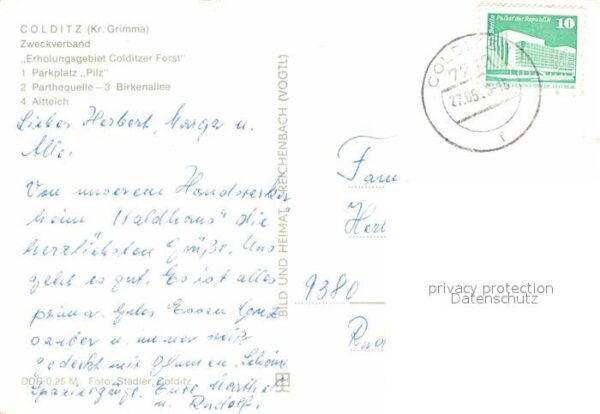 COLDITZ (Kr. Grimma)
Zweckverband
„Erholungsgebiet Colditzer Forst"
1 Parkplatz „Pilz"
2 Parthequelle – 3 Birkenallee
4 Altteich
Lieber Herbert, Marga u.
Alle.
Von unserem Handwerker
heim "Waldhaus" die
herzlichsten Grüße. Uns
geht es gut. Es ist alles
prima. Gutes Essen
sauber u. immer
gedeckt mit Blumen. Schöne
Spaziergänge. Eure Marthe
u. Rudolf.
DDR 0,25 M Foto: Stadler, Colditz
BILD UND HEIMAT REICHENBACH (VOGTL)
Berlin Palast der Republik 10
COLDITZ
27.05.
r
Fam
Her
9380
privacy protection
Datenschutz